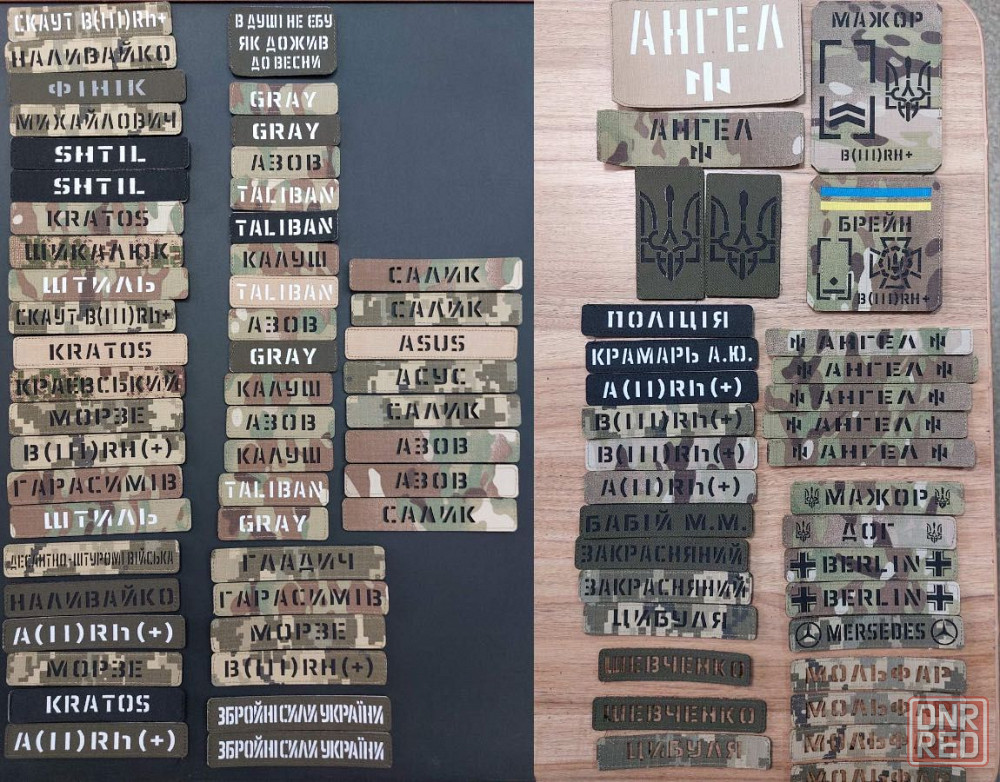 СКАУТ B(III)Rh+
НАЛИВАЙКО
ФІНІК
МИХАЙЛОВИЧ
SHTIL
SHTIL
KRATOS
ШИКАЛЮК
ШТИЛЬ
СКАУТ B(III)Rh+
KRATOS
КРАЕВСЬКИЙ
МОРЗЕ
B(III)RH(+)
ГАРАСИМІВ
ШТИЛЬ
ДЕСАНТНО-ШТУРМОВІ ВІЙСЬКА
НАЛИВАЙКО
A(II)Rh(+)
МОРЗЕ
KRATOS
A(II)Rh(+)
В ДУШІ НЕ ЄБУ
ЯК ДОЖИВ
ДО ВЕСНИ
GRAY
GRAY
АЗОВ
TALIBAN
TALIBAN
КАЛУШ
TALIBAN
АЗОВ
GRAY
КАЛУШ
АЗОВ
КАЛУШ
TALIBAN
GRAY
ГЛАДИЧ
ГАРАСИМІВ
МОРЗЕ
B(III)RH(+)
ЗБРОЙНІ СИЛИ УКРАЇНИ
ЗБРОЙНІ СИЛИ УКРАЇНИ
САЛИК
САЛИК
ASUS
АСУС
САЛИК
АЗОВ
АЗОВ
САЛИК
АНГЕЛ
АНГЕЛ
МАЖОР
B(III)RH+
БРЕЙН
B(III)RH+
ПОЛІЦІЯ
КРАМАРЬ А.Ю.
A(II)Rh(+)
B(III)Rh(+)
B(III)RH(+)
A(II)Rh(+)
БАБІЙ М.М.
ЗАКРАСНЯНИЙ
ЗАКРАСНЯНИЙ
ЦИБУЛЯ
ШЕВЧЕНКО
ШЕВЧЕНКО
ЦИБУЛЯ
АНГЕЛ
АНГЕЛ
АНГЕЛ
АНГЕЛ
АНГЕЛ
МАЖОР
ДОГ
BERLIN
BERLIN
MERSEDES
МОЛЬФАР
МОЛЬФАР
МОЛЬФ
МОЛЬФ
DNR
RED